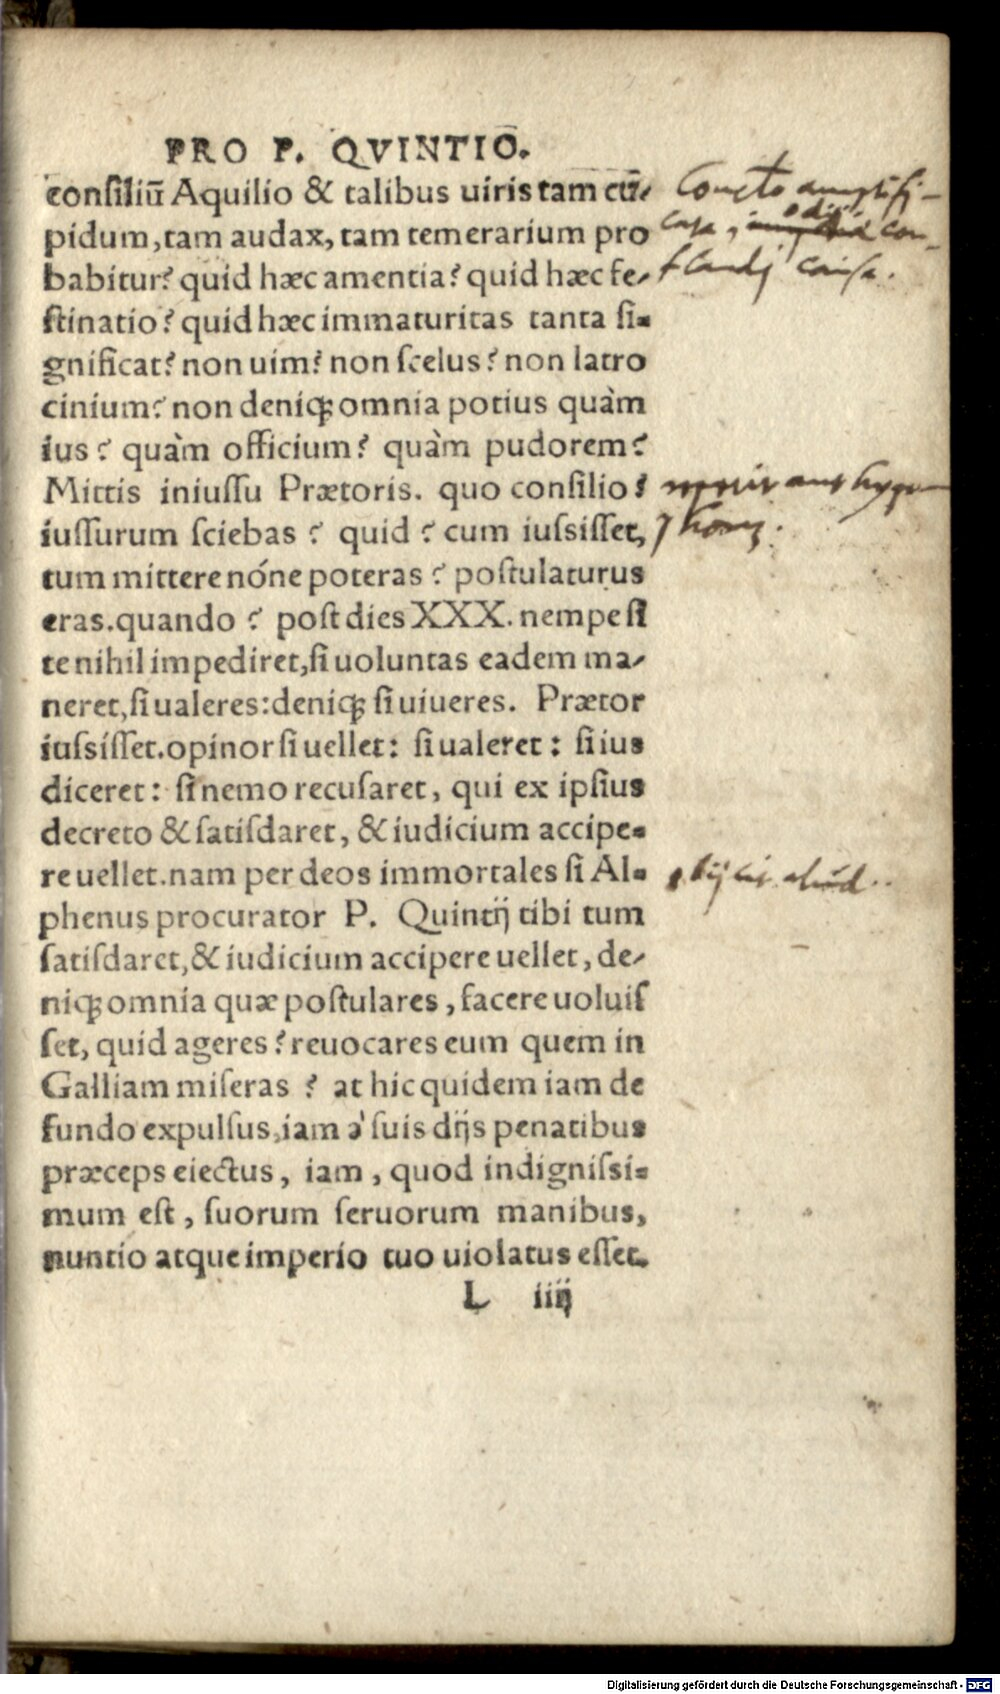 PRO P. QVINTIO.
consiliū Aquilio & talibus uiris tam cu⸗
pidum, tam audax, tam temerarium pro
babitur? quid hæc amentia? quid hæc fe⸗
stinatio? quid hæc immaturitas tanta si⸗
gnificat? non uim? non scelus? non latro
cinium? non deniq; omnia potius quàm
ius? quàm officium? quàm pudorem?
Mittis iniussu Prætoris. quo consilio?
iussurum sciebas? quid? cum iussisset,
tum mittere nóne poteras? postulaturus
eras. quando? post dies XXX. nempe si
te nihil impediret, si uoluntas eadem ma⸗
neret, si ualeres: deniq; si uiueres. Prætor
iussisset. opinor si uellet: si ualeret: si ius
diceret: si nemo recusaret, qui ex ipsius
decreto & satisdaret, & iudicium accipe⸗
re uellet. nam per deos immortales si Al⸗
phenus procurator P. Quintij tibi tum
satisdaret, & iudicium accipere uellet, de⸗
niq; omnia quæ postulares, facere uoluis
set, quid ageres? reuocares eum quem in
Galliam miseras? at hic quidem iam de
fundo expulsus, iam à suis dijs penatibus
præceps eiectus, iam, quod indignissi⸗
mum est, suorum seruorum manibus,
nuntio atque imperio tuo uiolatus esset.
L iiij
odij con-
flandj causa.
Digitalisierung gefördert durch die Deutsche Forschungsgemeinschaft - DFG